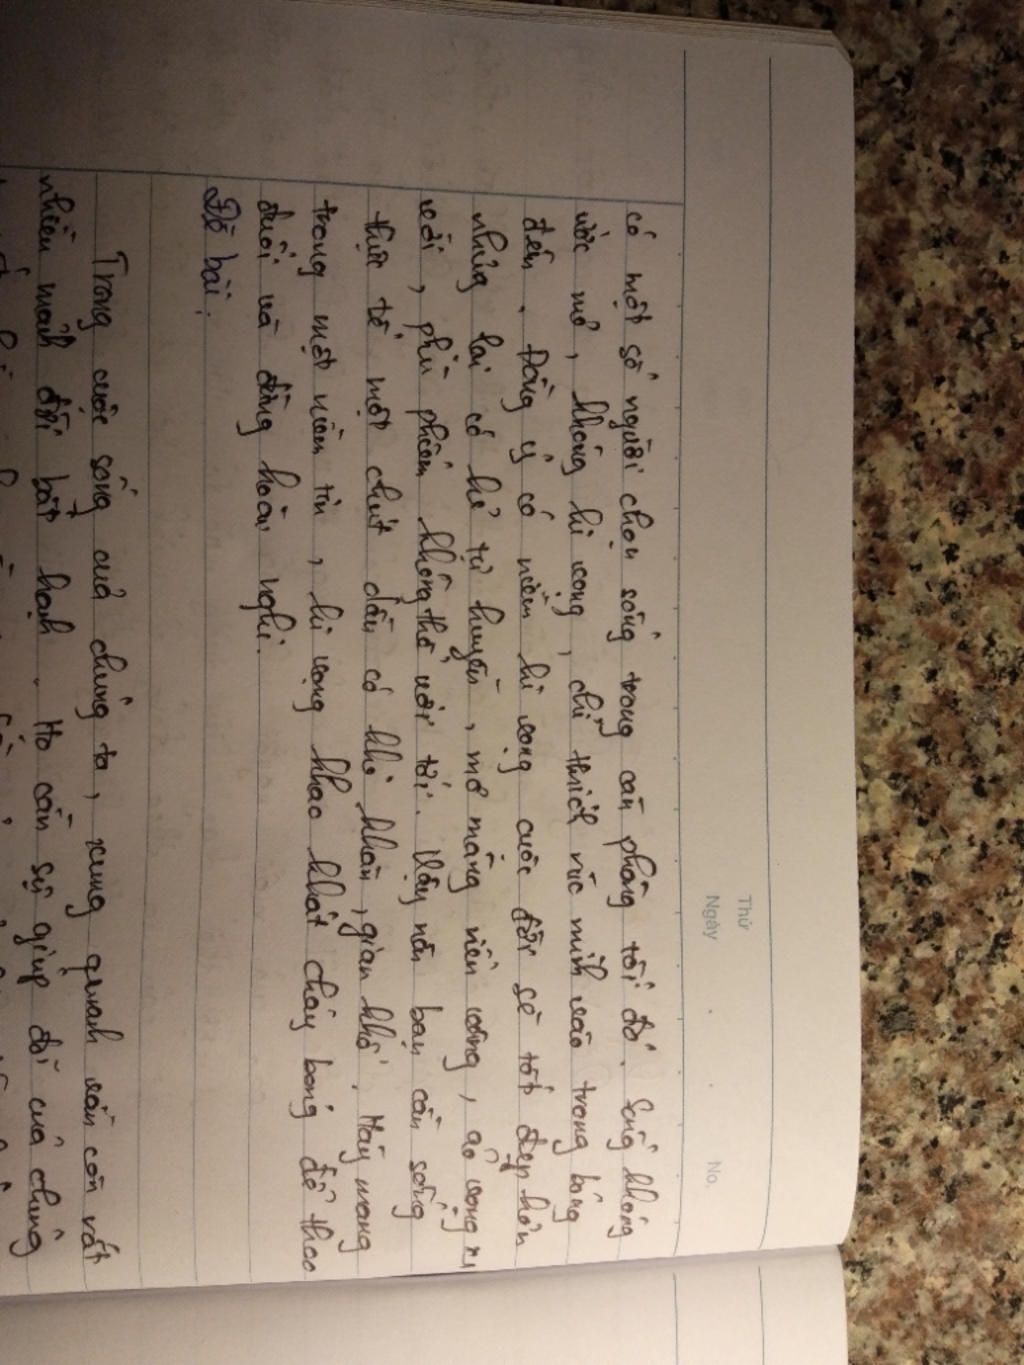 Thứ
Ngày
No.
có một số người chọn sống trong căn phòng tối đó. Sống không
ước mơ, không hi vọng, chỉ thiết mình vào trong bóng
đến. Đồng ý có niềm hi vọng cuộc đời sẽ tốt đẹp hơn
nhưng lại có kẻ tự huyễn, mơ mộng viển vông, ảo vọng
vời, phù phiếm không thể với tới. Vậy nên bạn cần sống
thực tế một chút dẫu có khó khăn, gian khổ. Hãy mang
trong một niềm tin, hi vọng khao khát cháy bỏng để theo
đuổi và đừng hoài nghi.
Đề bài:
Trong cuộc sống của chúng ta, xung quanh vẫn còn rất
nhiều mảnh đời bất hạnh. Họ cần sự giúp đỡ của chúng